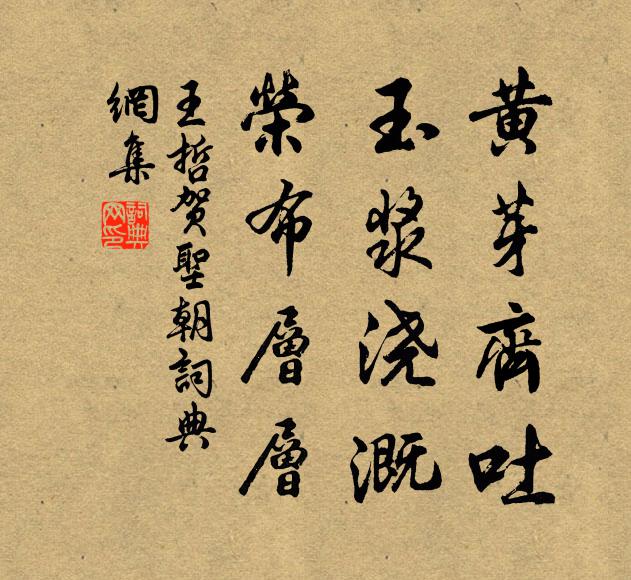 黄芽齊吐
玉漿浇溉
榮布層層
王哲贺聖朝詞典
網集
詞典
网印